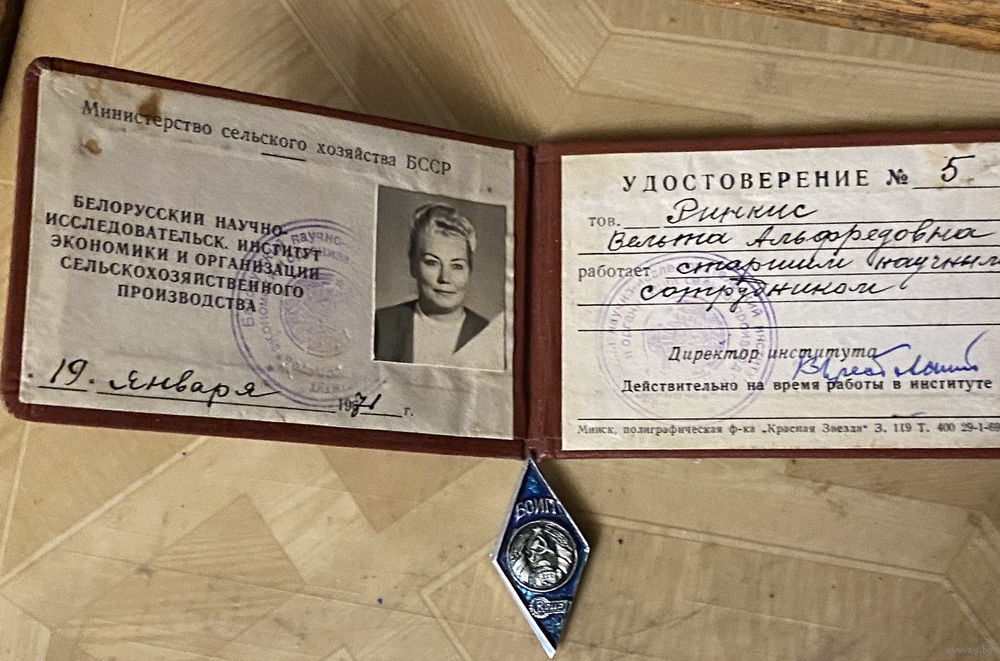 Министерство сельского хозяйства БССР
БЕЛОРУССКИЙ НАУЧНО-
ИССЛЕДОВАТЕЛЬСК. ИНСТИТУТ
ЭКОНОМИКИ И ОРГАНИЗАЦИИ
СЕЛЬСКОХОЗЯЙСТВЕННОГО
ПРОИЗВОДСТВА
19. Января 1971 г.
УДОСТОВЕРЕНИЕ № 5
тов. Ринкис
Вельта Альфредовна
работает старшим научным
сотрудником
Директор института
Действительно на время работы в институте
Минск, полиграфическая ф-ка „Красная Звезда" З. 119 Т. 400 29-1-69
БОИП
www.ay.by